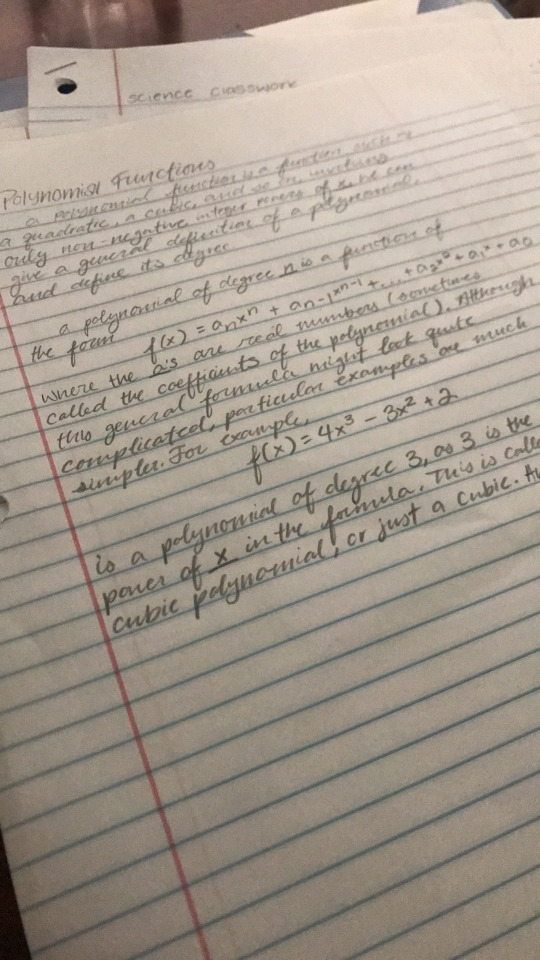 science classwork
Polynomial Functions
a polynomial function is a function such as
a quadratic, a cubic, and so on, involving
only non-negative integer powers of x. We can
give a general definition of a polynomial,
and define its degree
a polynomial of degree n is a function of
the form
f(x) = aₙxⁿ + aₙ₋₁xⁿ⁻¹ + ... + a₂x² + a₁x + a₀
where the a's are real numbers (sometimes
called the coefficients of the polynomial). Although
this general formula might look quite
complicated, particular examples are much
simpler. For example,
f(x) = 4x³ − 3x² + 2
is a polynomial of degree 3, as 3 is the
power of x in the formula. This is calle
cubic polynomial, or just a cubic. A